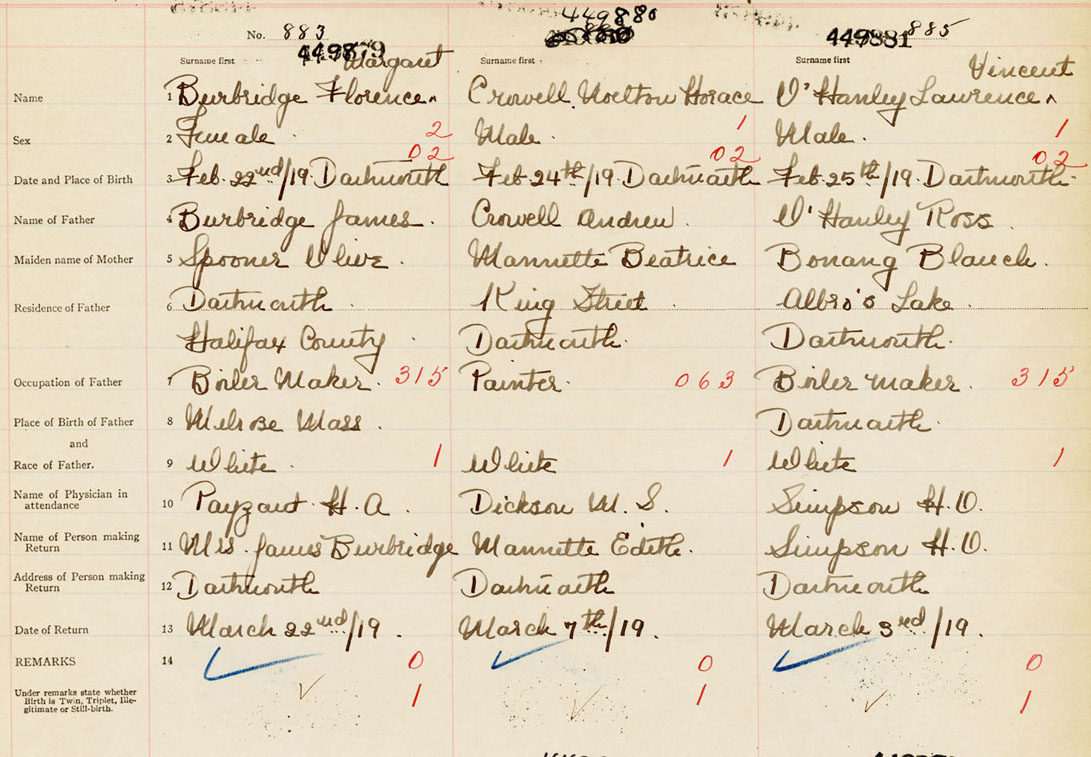 449880
No. 883
885
449879
449881
Surname first
Margaret
Surname first
Surname first
Vincent
Name 1 Burbridge Florence ^ Crowell Noelton Horace O'Hanley Lawrence ^
Sex 2 Female 2 Male 1 Male 1
02 02 02
Date and Place of Birth 3 Feb. 22nd/19 Dartmouth Feb 24th/19 Dartmouth Feb 25th/19 Dartmouth
Name of Father 4 Burbridge James Crowell Andrew O'Hanley Ross
Maiden name of Mother 5 Spooner Olive Mannette Beatrice Bonang Blanch
Residence of Father 6 Dartmouth King Street Albro's Lake
Halifax County Dartmouth Dartmouth
Occupation of Father 7 Boiler Maker 315 Painter 063 Boiler Maker 315
Place of Birth of Father 8 Melrose Mass Dartmouth
and
Race of Father. 9 White 1 White 1 White 1
Name of Physician in
attendance 10 Payzant H. A. Dickson M. S. Simpson H. O.
Name of Person making
Return 11 Mrs. James Burbridge Mannette Edith. Simpson H. O.
Address of Person making
Return 12 Dartmouth Dartmouth Dartmouth
Date of Return 13 March 22nd/19. March 7th/19. March 3rd/19.
REMARKS 14 0 0 0
Under remarks state whether
Birth is Twin, Triplet, Ille-
gitimate or Still-birth. 1 1 1